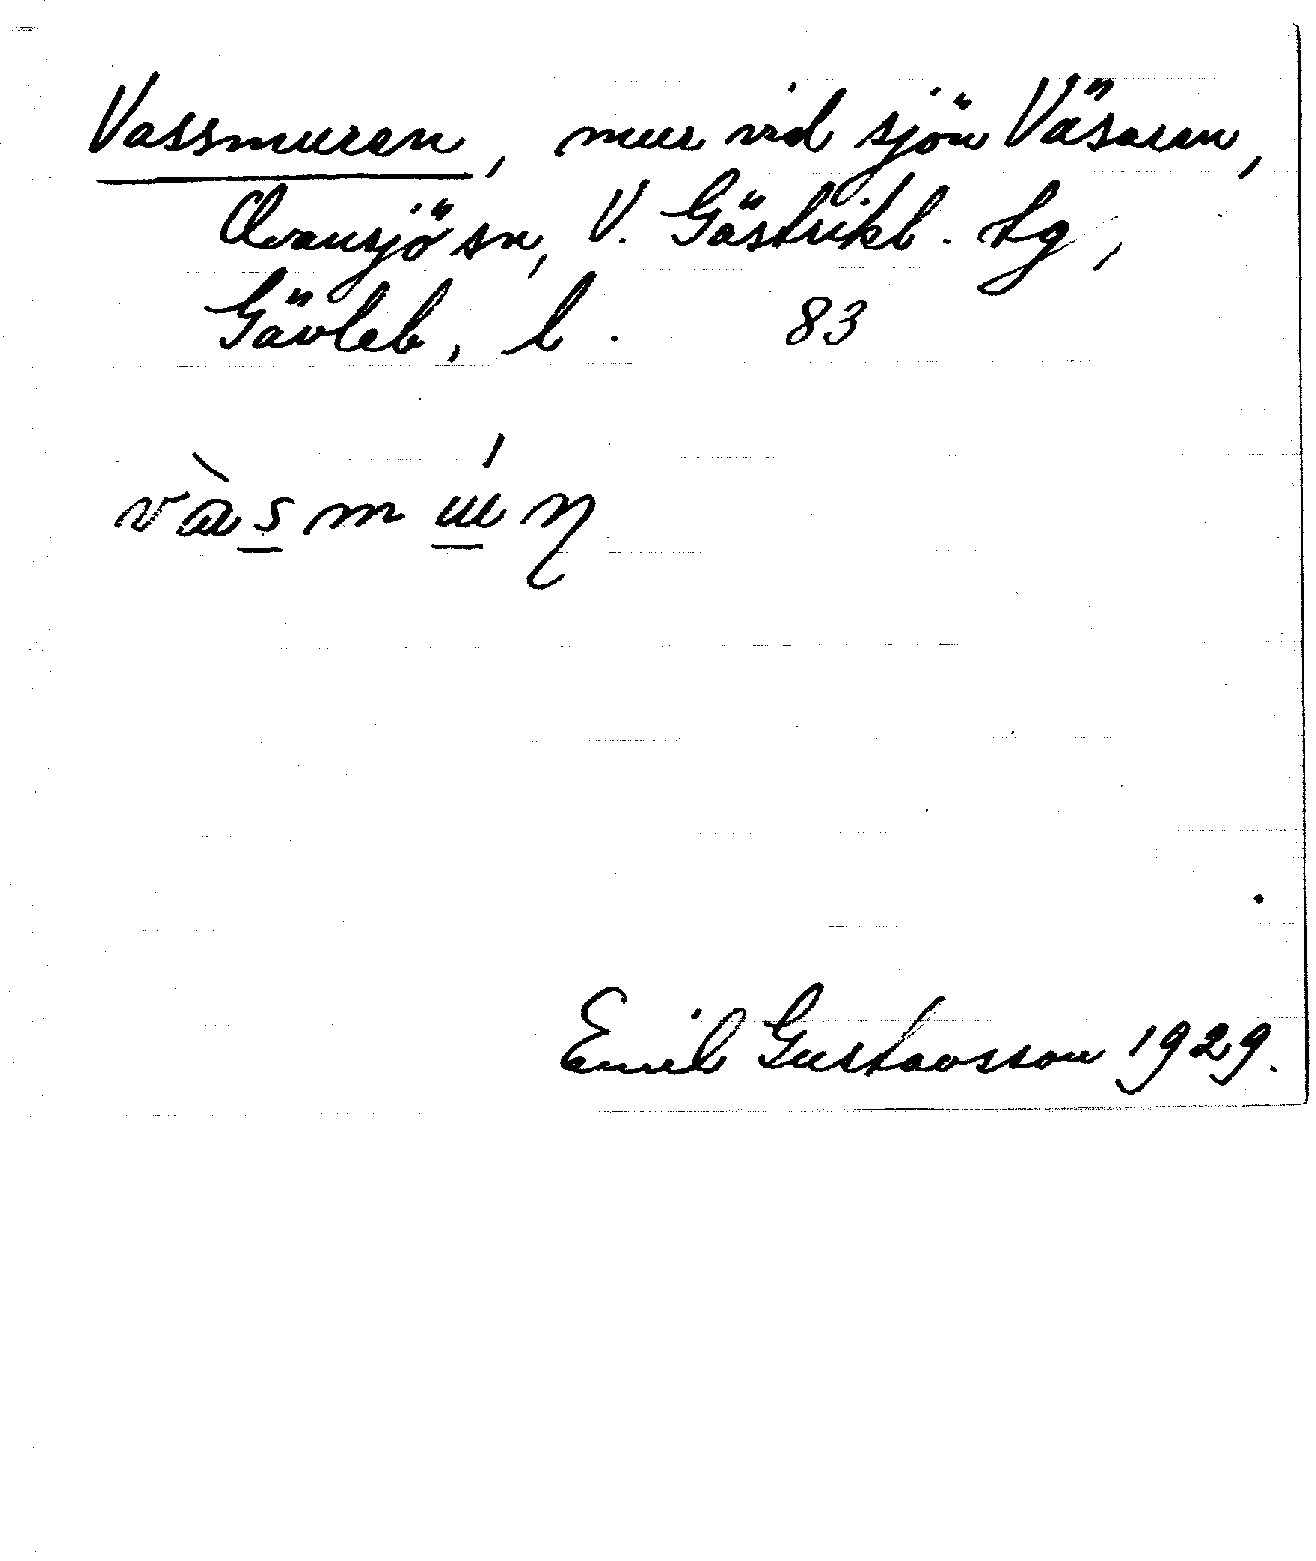 Vassmuren, mur vid sjön Väsaren,
Ovansjö sn, V. Gästrikl. tg,
Gävleb. l. 83
vàsmúŋ
Emil Gustavsson 1929.